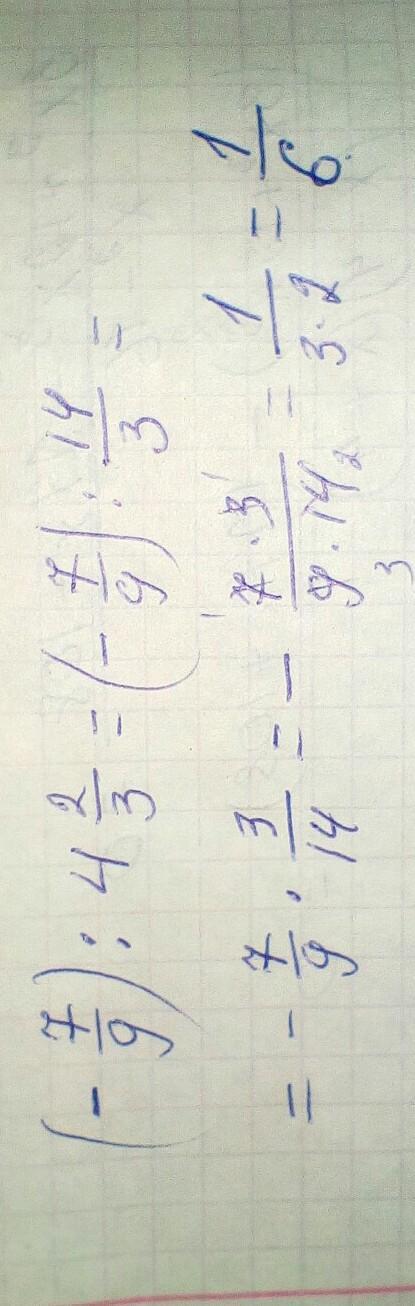 (-7/9) : 4 2/3 = (-7/9) : 14/3 =
= -7/9 · 3/14 = - 7·3/9·14 = 1/3·2 = 1/6